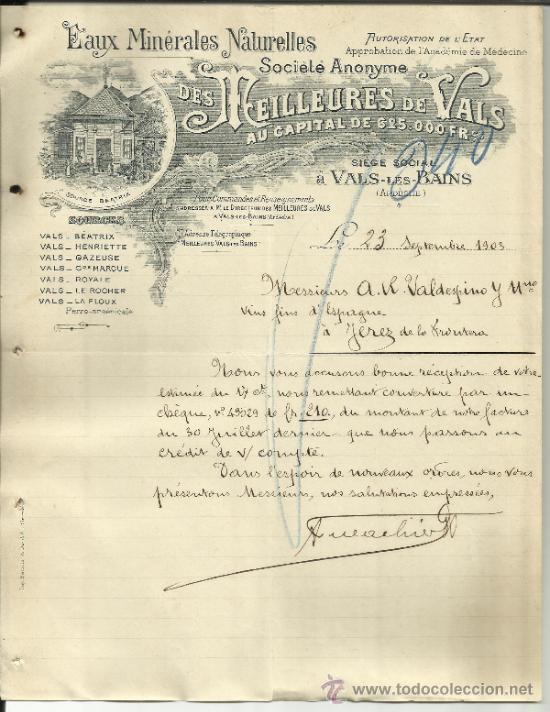 Eaux Minérales Naturelles
Autorisation de l'Etat
Approbation de l'Académie de Médecine
Société Anonyme
des Meilleures de Vals
au Capital de 625.000 Fr.
Siège Social
à Vals-les-Bains
(Ardèche)
Source Béatrix
Pour Commandes et Renseignements
s'adresser à Mr le Directeur des Meilleures de Vals
à Vals-les-Bains (Ardèche)
Adresse Télégraphique
Meilleures Vals-les-Bains
Sources
Vals _ Béatrix
Vals _ Henriette
Vals _ Gazeuse
Vals _ Csse Marque
Vals _ Royale
Vals _ Le Rocher
Vals _ La Floux
Ferro-arsénicale
Le 23 Septembre 1903
Messieurs A. R. Valdespino y Hno
Vins fins d'Espagne
à Jerez de la Frontera
Nous vous accusons bonne réception de votre
estimée du 17 ct, nous remettant couverture par un
chèque, n° 49029 de fr 210, du montant de notre facture
du 30 Juillet dernier que nous passons au
crédit de v/ compte.
Dans l'espoir de nouveaux ordres, nous vous
présentons Messieurs, nos salutations empressées,
todocoleccion
www.todocoleccion.net